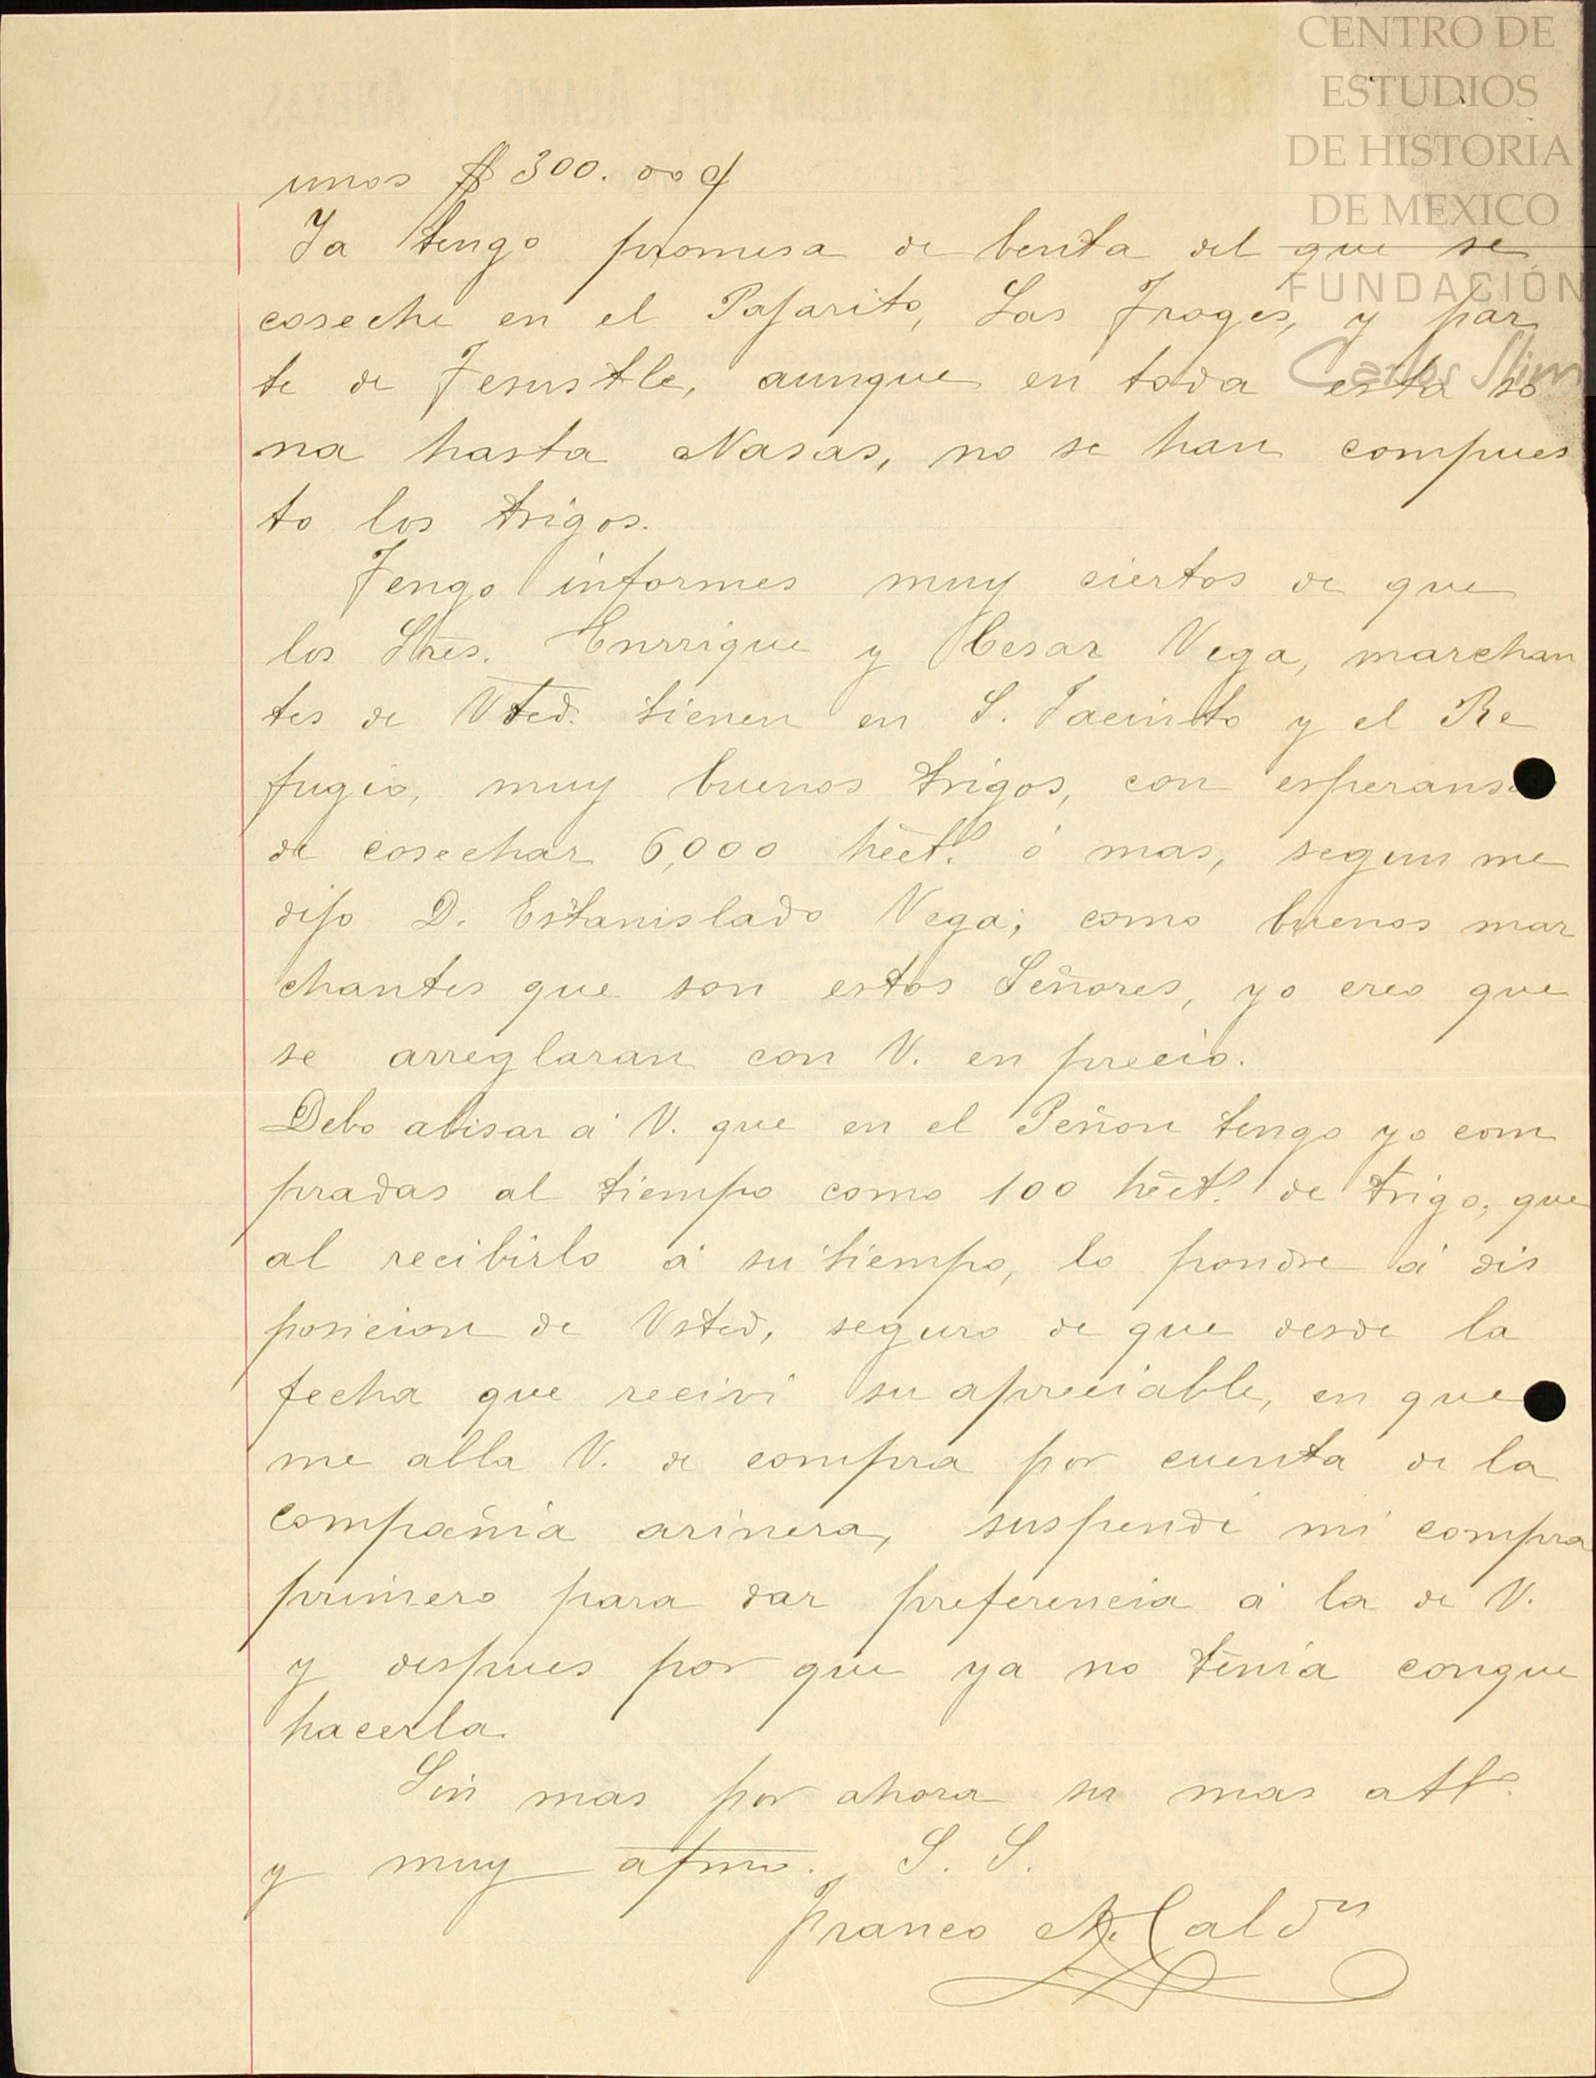 CENTRO DE
ESTUDIOS
DE HISTORIA
DE MEXICO
FUNDACIÓN
Carlos Slim
unos $300.00 c/
Ya tengo promesa de benta del que se
coseche en el Pajarito, Las Troges, y par
te de Jesustle, aunque en toda esta so
na hasta Nasas, no se han compues
to los trigos.
Tengo informes muy ciertos de que
los Sres. Enrrique y Cesar Vega, marchan
tes de Vted. tienen en S. Jacinto y el Re
fugio, muy buenos trigos, con esperansa
de cosechar 6,000 hect.s ó mas, segun me
dijo D. Estanislado Vega; como buenos mar
chantes que son estos Señores, yo creo que
se arreglaran con V. en precio.
Debo abisar á V. que en el Peñon tengo yo com
pradas al tiempo como 100 hect.s de trigo, que
al recibirlo á su tiempo, lo pondre á dis
posicion de Vsted, seguro de que desde la
fecha que recivi su apreciable, en que
me abla V. de compra por cuenta de la
compañia arinera, suspendi mi compra
primero para dar preferencia á la de V.
y despues por que ya no tenia conque
hacerla.
Sin mas por ahora su mas atto.
y muy afmo. S. S.
Franco M. Caldn